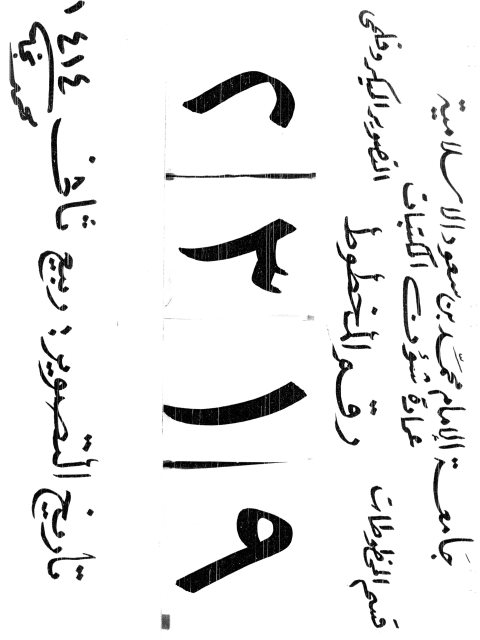 جامعة الإمام محمد بن سعود الاسلامية
عمادة شؤون المكتبات
قسم المخطوطات التصوير الميكروفلمي
رقم المخطوط
٢٣١٩
تاريخ التصوير: ربيع ثاني ١٤١٤